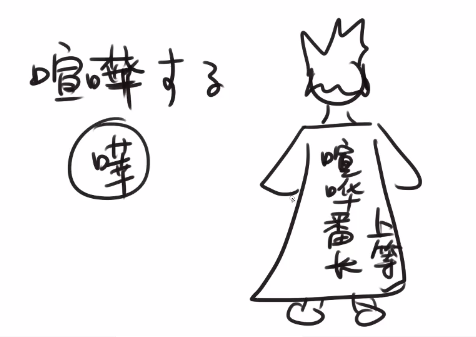 喧嘩する
嘩
喧哗番长
上等